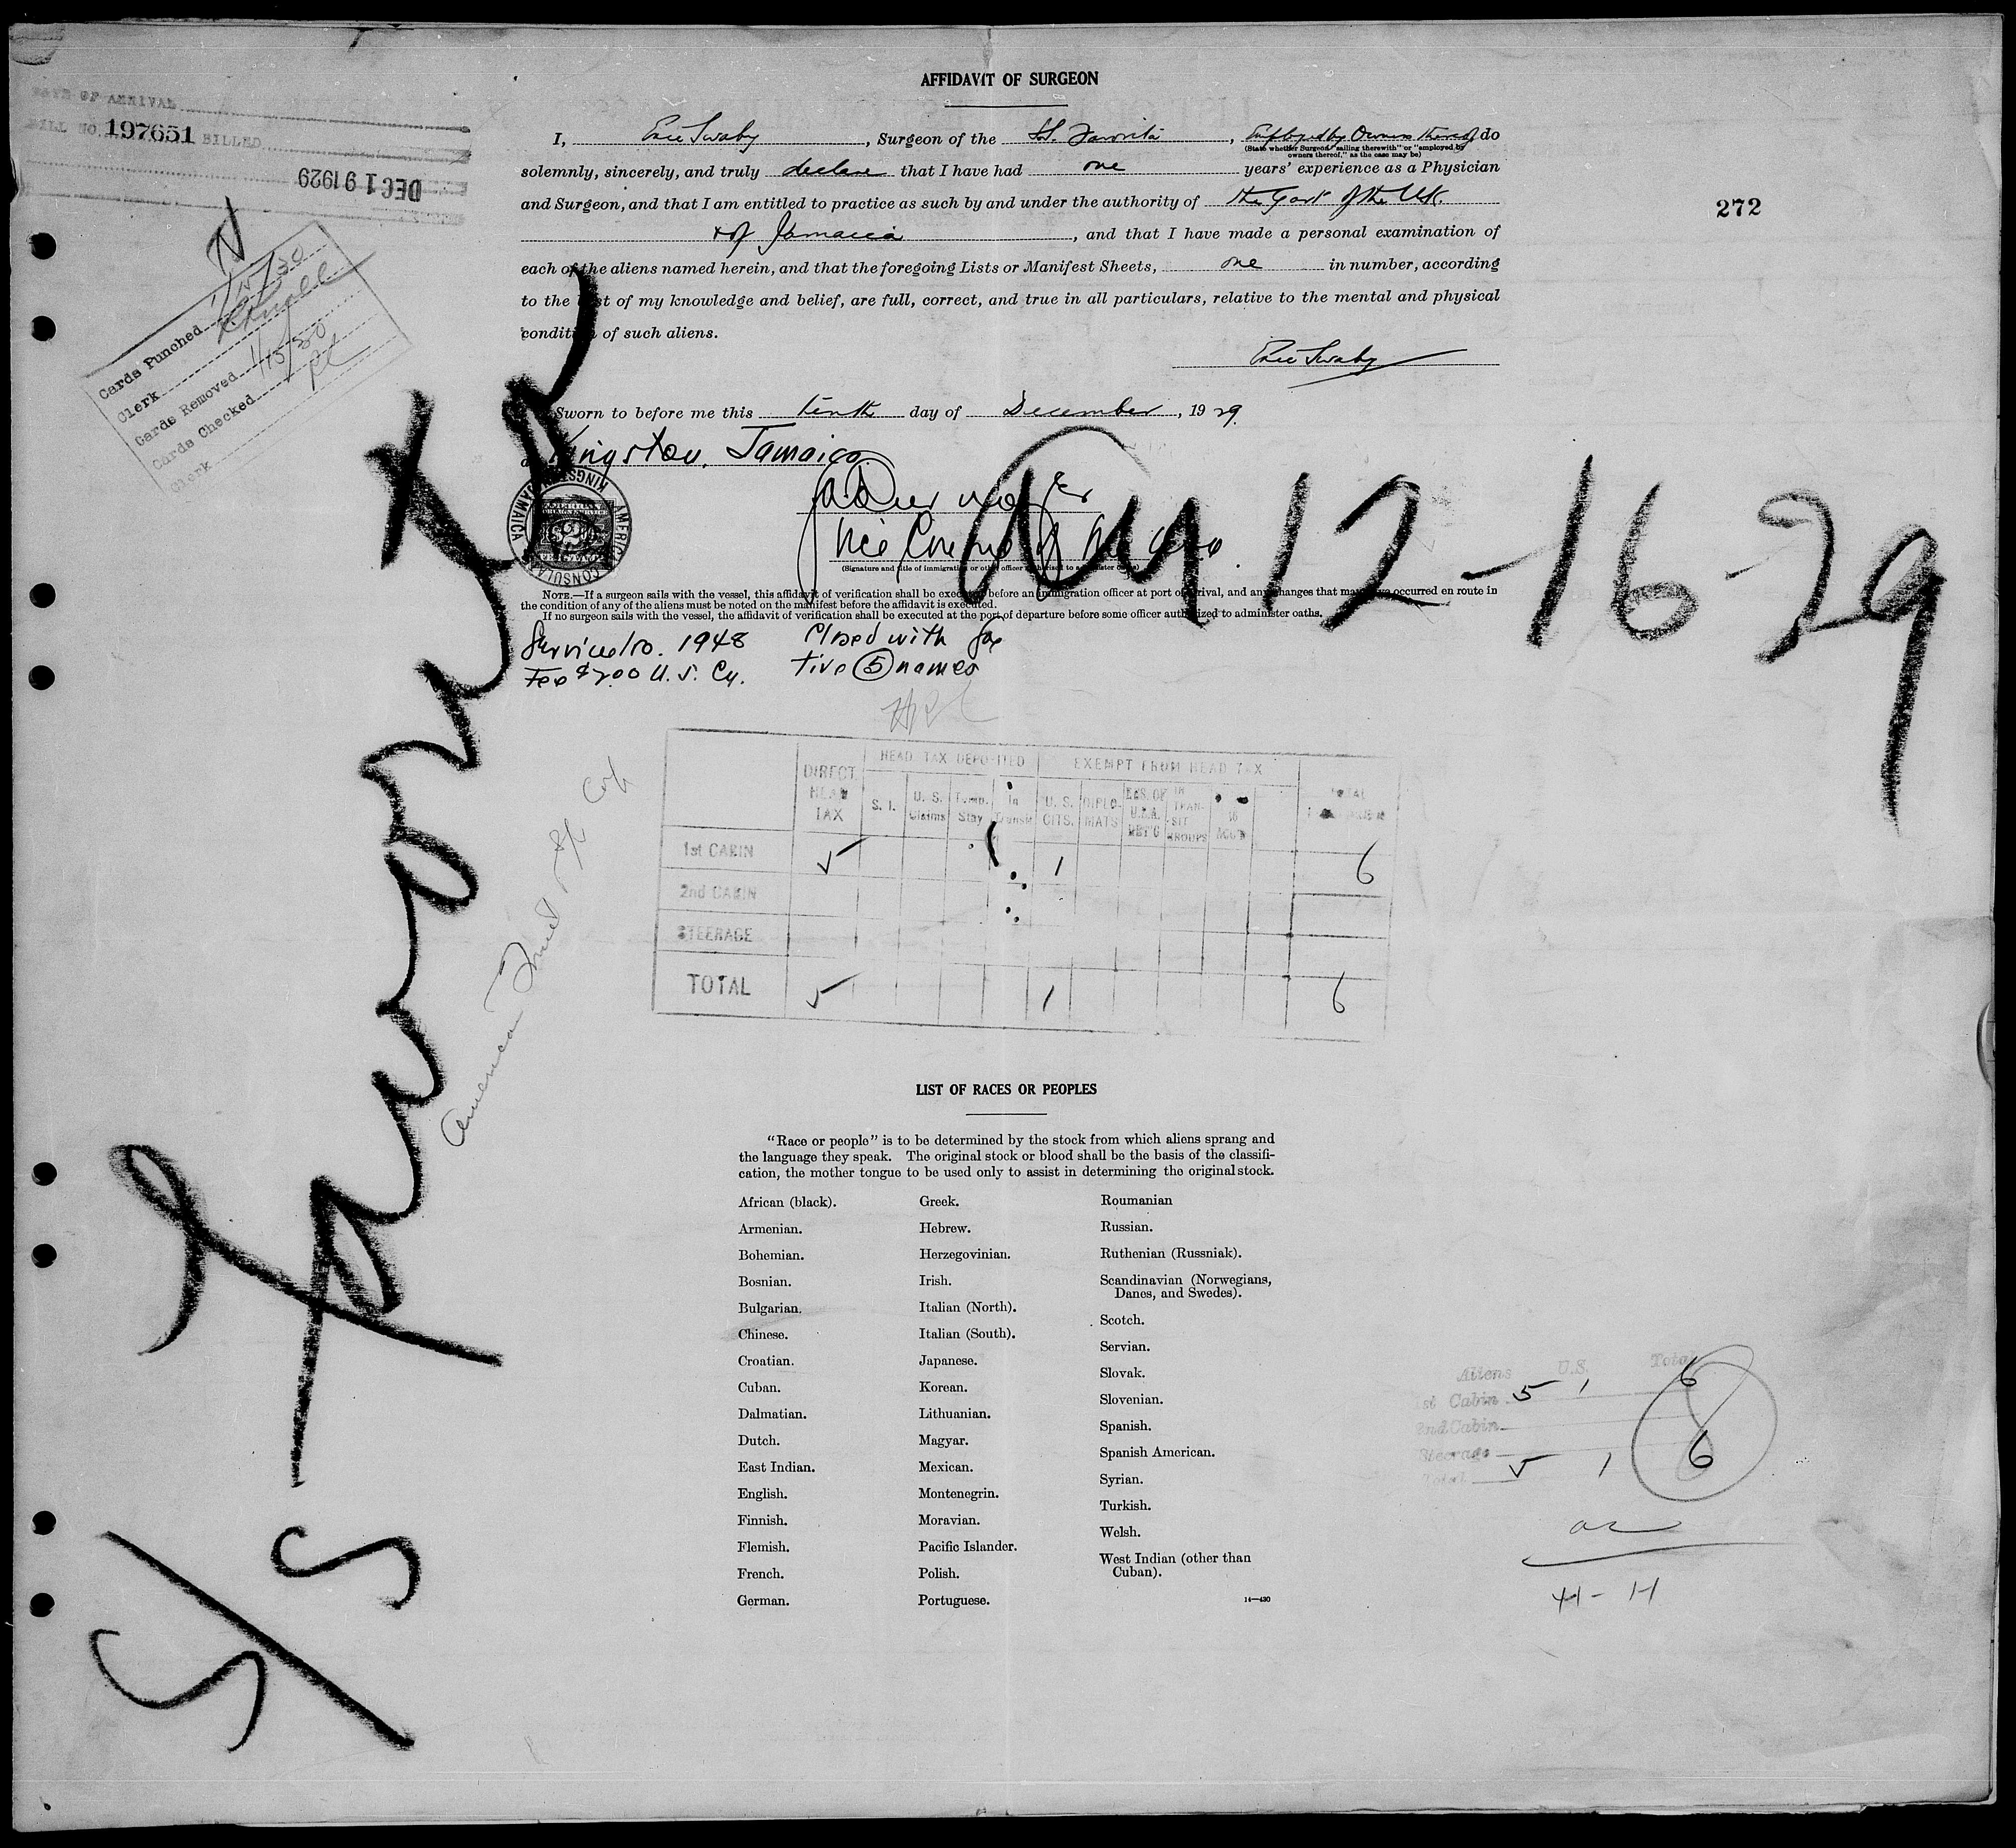 AFFIDAVIT OF SURGEON
DATE OF ARRIVAL
BILL NO. 197651 BILLED
DEC 19 1929
I, Eric Swaby, Surgeon of the SS. Favorita, Employed by Owners thereof do
(State whether Surgeon "sailing therewith" or "employed by owners thereof," as the case may be)
solemnly, sincerely, and truly declare that I have had one years' experience as a Physician
and Surgeon, and that I am entitled to practice as such by and under the authority of the Govt of the U.K.
& of Jamaica, and that I have made a personal examination of
each of the aliens named herein, and that the foregoing Lists or Manifest Sheets, one in number, according
to the best of my knowledge and belief, are full, correct, and true in all particulars, relative to the mental and physical
condition of such aliens.
Eric Swaby
272
Cards Punched 1/15/30
Clerk
Cards Removed 1/15/30
Cards Checked
Clerk
Sworn to before me this tenth day of December, 1929.
at Kingston, Jamaica
AMERICAN CONSULATE KINGSTON JAMAICA
Vice Consul of
(Signature and title of immigration or other officer authorized to administer oaths)
NOTE.—If a surgeon sails with the vessel, this affidavit of verification shall be executed before an immigration officer at port of arrival, and any changes that may have occurred en route in
the condition of any of the aliens must be noted on the manifest before the affidavit is executed.
If no surgeon sails with the vessel, the affidavit of verification shall be executed at the port of departure before some officer authorized to administer oaths.
Service No. 1948
Fee $2.00 U.S. Cy.
Closed with
five (5) names
S/S Favorita
12-16-29
American Fruit
HEAD TAX DEPOSITED EXEMPT FROM HEAD TAX
DIRECT HEAD TAX S. I. U. S. Claims Temp. Stay In Transit U. S. CITS. DIPLO-MATS TOTAL
1st CABIN 5 1 6
2nd CABIN
STEERAGE
TOTAL 5 1 6
LIST OF RACES OR PEOPLES
"Race or people" is to be determined by the stock from which aliens sprang and
the language they speak. The original stock or blood shall be the basis of the classifi-
cation, the mother tongue to be used only to assist in determining the original stock.
African (black).
Armenian.
Bohemian.
Bosnian.
Bulgarian.
Chinese.
Croatian.
Cuban.
Dalmatian.
Dutch.
East Indian.
English.
Finnish.
Flemish.
French.
German.
Greek.
Hebrew.
Herzegovinian.
Irish.
Italian (North).
Italian (South).
Japanese.
Korean.
Lithuanian.
Magyar.
Mexican.
Montenegrin.
Moravian.
Pacific Islander.
Polish.
Portuguese.
Roumanian
Russian.
Ruthenian (Russniak).
Scandinavian (Norwegians,
Danes, and Swedes).
Scotch.
Servian.
Slovak.
Slovenian.
Spanish.
Spanish American.
Syrian.
Turkish.
Welsh.
West Indian (other than
Cuban).
14—430
Aliens U.S. Total
1st Cabin 5 1 6
2nd Cabin
Steerage
Total 5 1 6